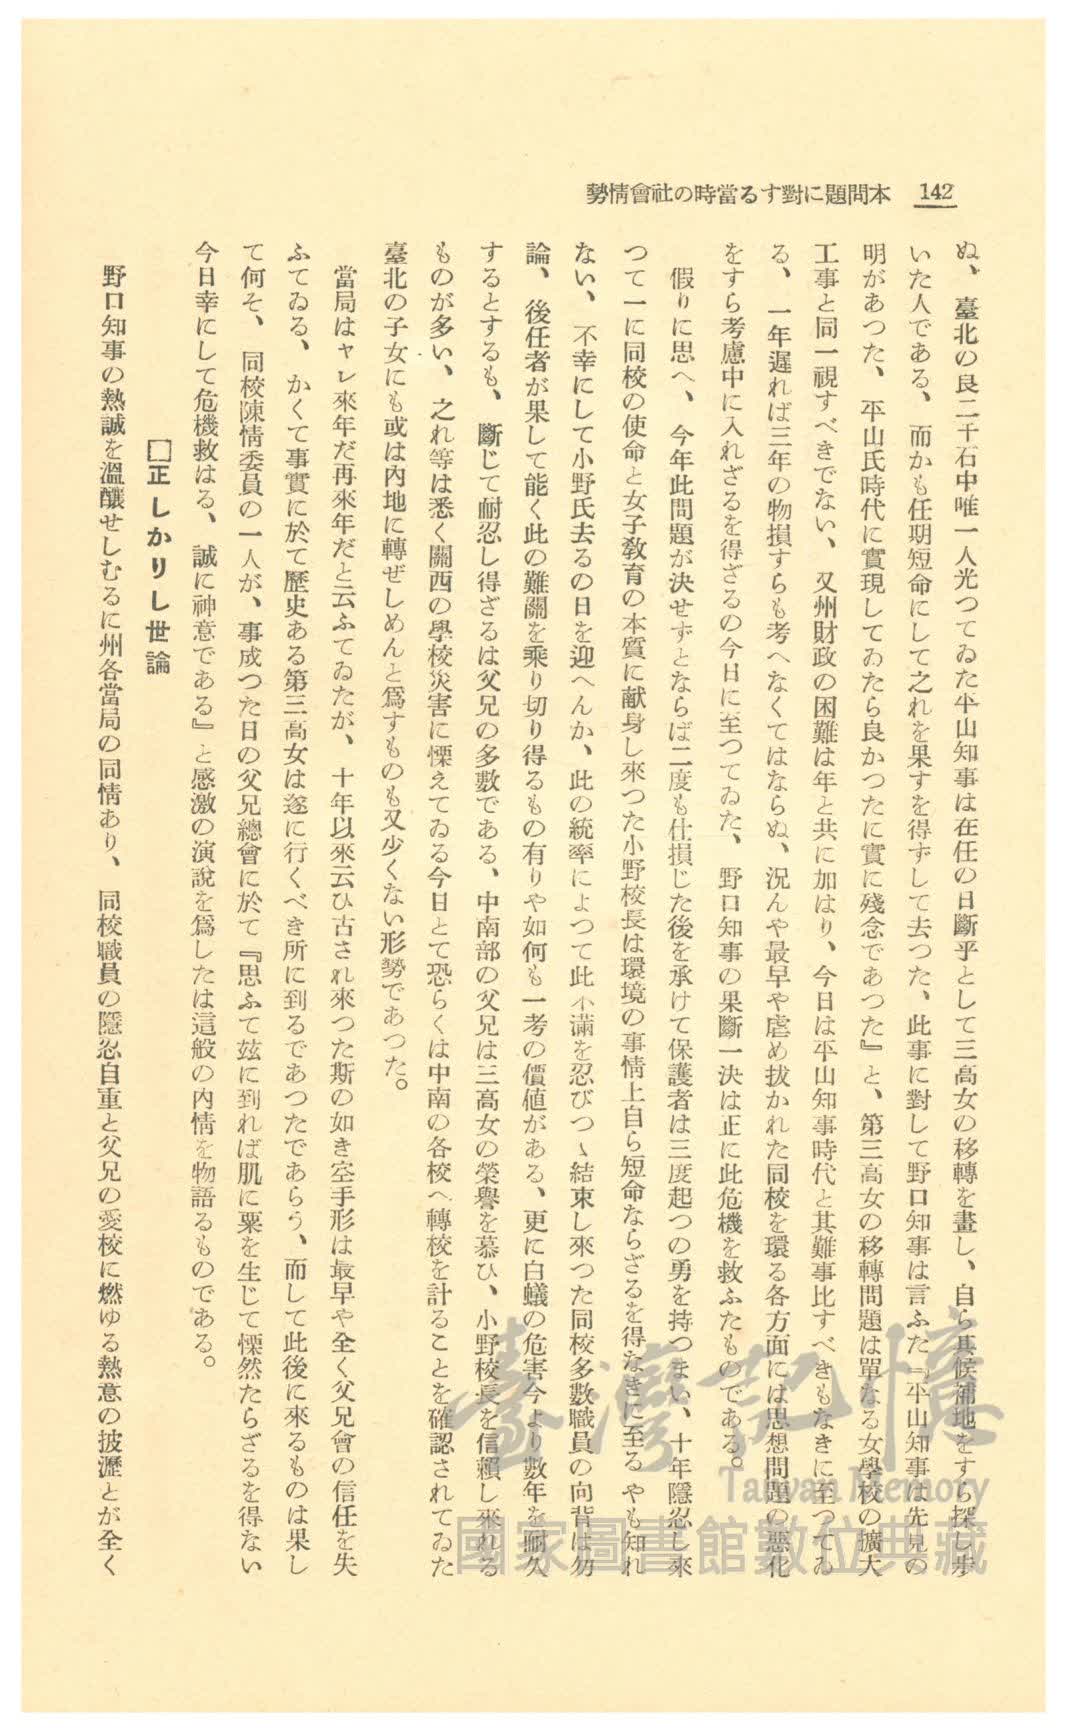 142
本問題に對する當時の社會情勢
ぬ、臺北の良二千石中唯一人光つてゐた平山知事は在任の日斷乎として三高女の移轉を畫し、自ら其候補地をすら探し步
いた人である、而かも任期短命にして之れを果すを得ずして去つた、此事に對して野口知事は言ふた『平山知事は先見の
明があつた、平山氏時代に實現してゐたら良かつたに實に殘念であつた』と、第三高女の移轉問題は單なる女學校の擴大
工事と同一視すべきでない、又州財政の困難は年と共に加はり、今日は平山知事時代と其難事比すべきもなきに至つてゐ
る、一年遲れば三年の物損すらも考へなくてはならぬ、況んや最早や虐め拔かれた同校を環る各方面には思想問題の惡化
をすら考慮中に入れざるを得ざるの今日に至つてゐた、野口知事の果斷一決は正に此危機を救ふたものである。
假りに思へ、今年此問題が決せずとならば二度も仕損じた後を承けて保護者は三度起つの勇を持つまい、十年隱忍し來
つて一に同校の使命と女子敎育の本質に献身し來つた小野校長は環境の事情上自ら短命ならざるを得なきに至るやも知れ
ない、不幸にして小野氏去るの日を迎へんか、此の統率によつて此不滿を忍びつゝ結束し來つた同校多數職員の向背は勿
論、後任者が果して能く此の難關を乘り切り得るもの有りや如何も一考の價値がある、更に白蟻の危害今より數年を耐久
するとするも、斷じて耐忍し得ざるは父兄の多數である、中南部の父兄は三高女の榮譽を慕ひ、小野校長を信賴し來れる
ものが多い、之れ等は悉く關西の學校災害に慄えてゐる今日とて恐らくは中南の各校へ轉校を計ることを確認されてゐた
臺北の子女にも或は內地に轉ぜしめんと爲すものも又少くない形勢であつた。
當局はヤレ來年だ再來年だと云ふてゐたが、十年以來云ひ古され來つた斯の如き空手形は最早や全く父兄會の信任を失
ふてゐる、かくて事實に於て歷史ある第三高女は遂に行くべき所に到るであつたであらう、而して此後に來るものは果し
て何そ、同校陳情委員の一人が、事成つた日の父兄總會に於て『思ふて玆に到れば肌に粟を生じて慄然たらざるを得ない
今日幸にして危機救はる、誠に神意である』と感激の演說を爲したは這般の內情を物語るものである。
□正しかりし世論
野口知事の熱誠を溫釀せしむるに州各當局の同情あり、同校職員の隱忍自重と父兄の愛校に燃ゆる熱意の披瀝とが全く
臺灣記憶
Taiwan Memory
國家圖書館數位典藏